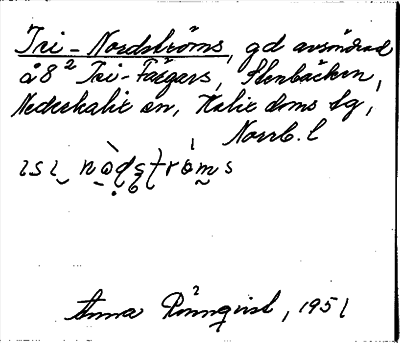 Isi-Nordströms, gd avsöndrad
å 8² Isi-Fägers, Stenbäcken,
Nederkalix sn, Kalix doms lg,
Norrb. l
ɪsɪ nodstroms
Anna Rönnqvist, 1951